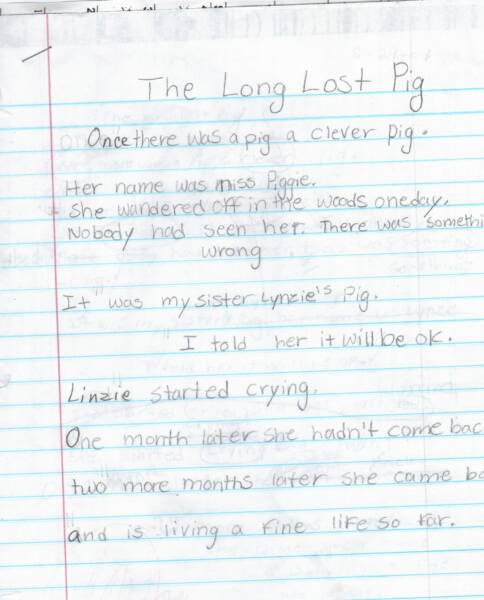 The Long Lost Pig
Once there was a pig a clever pig.
Her name was miss Piggie.
She wandered off in the woods oneday.
Nobody had seen her. There was somethi
wrong
It was my sister Lynzie's Pig.
I told her it will be ok.
Linzie started crying.
One month later she hadn't come bac
two more months later she came ba
and is living a fine life so far.